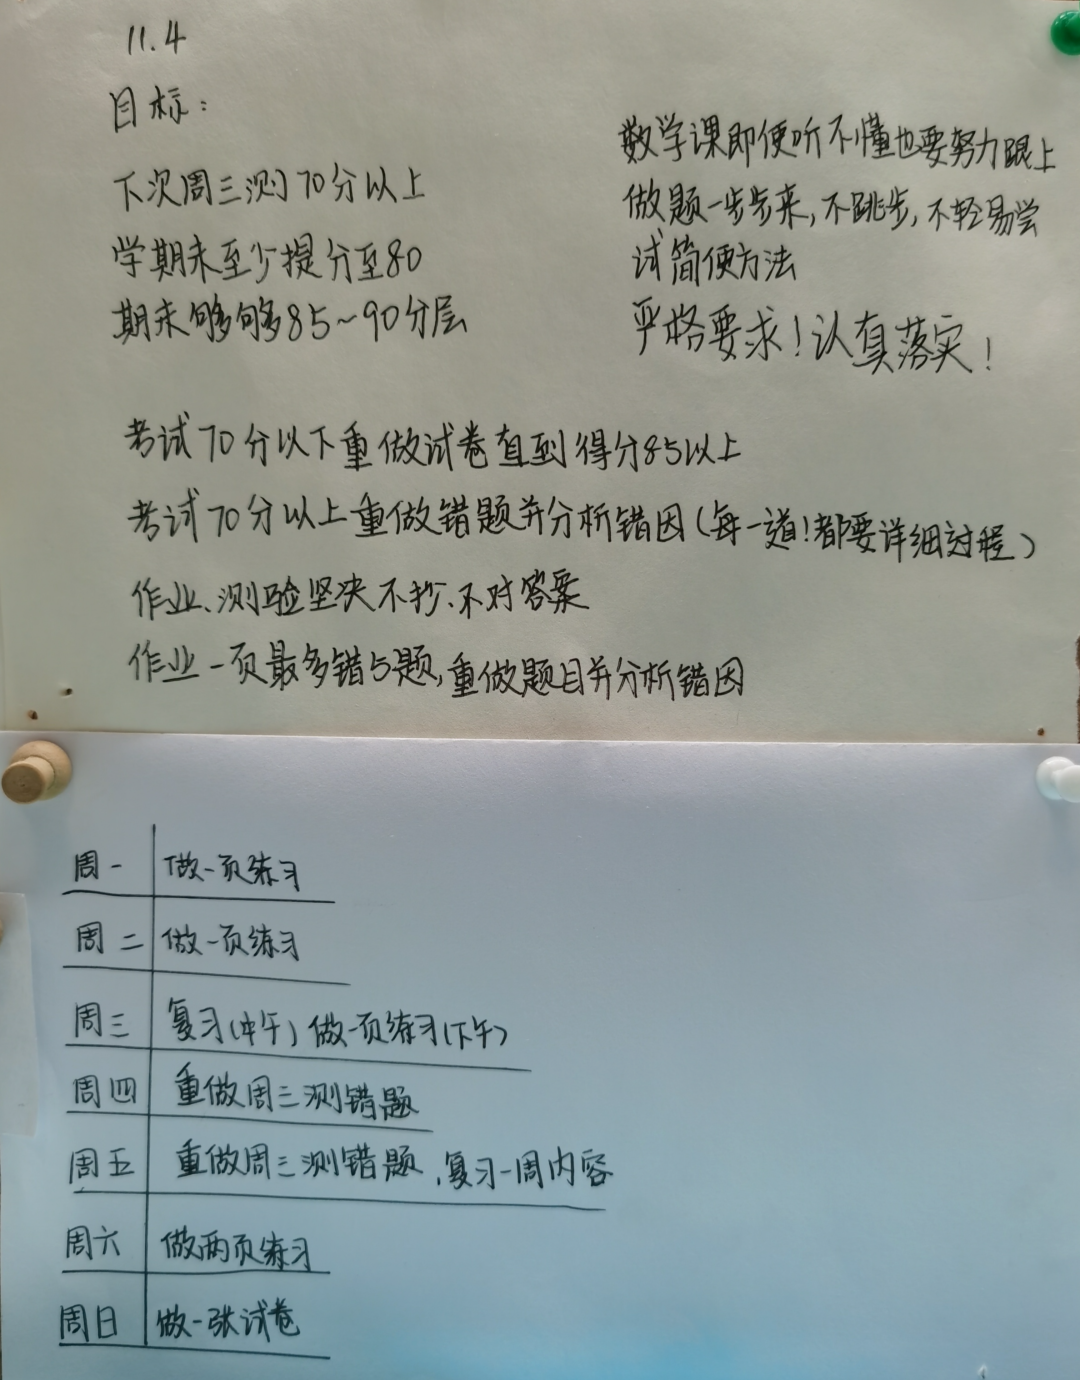 11.4
目标：
下次周三测70分以上
学期末至少提分至80
期末够够85~90分层
数学课即使听不懂也要努力跟上
做题一步步来，不跳步，不轻易尝
试简便方法
严格要求！认真落实！
考试70分以下重做试卷直到得分85以上
考试70分以上重做错题并分析错因（每一道！都要详细过程）
作业、测验坚决不抄、不对答案
作业一页最多错5题，重做题目并分析错因
周一 做一页练习
周二 做一页练习
周三 复习（中午）做一页练习（下午）
周四 重做周三测错题
周五 重做周三测错题、复习一周内容
周六 做两页练习
周日 做一张试卷